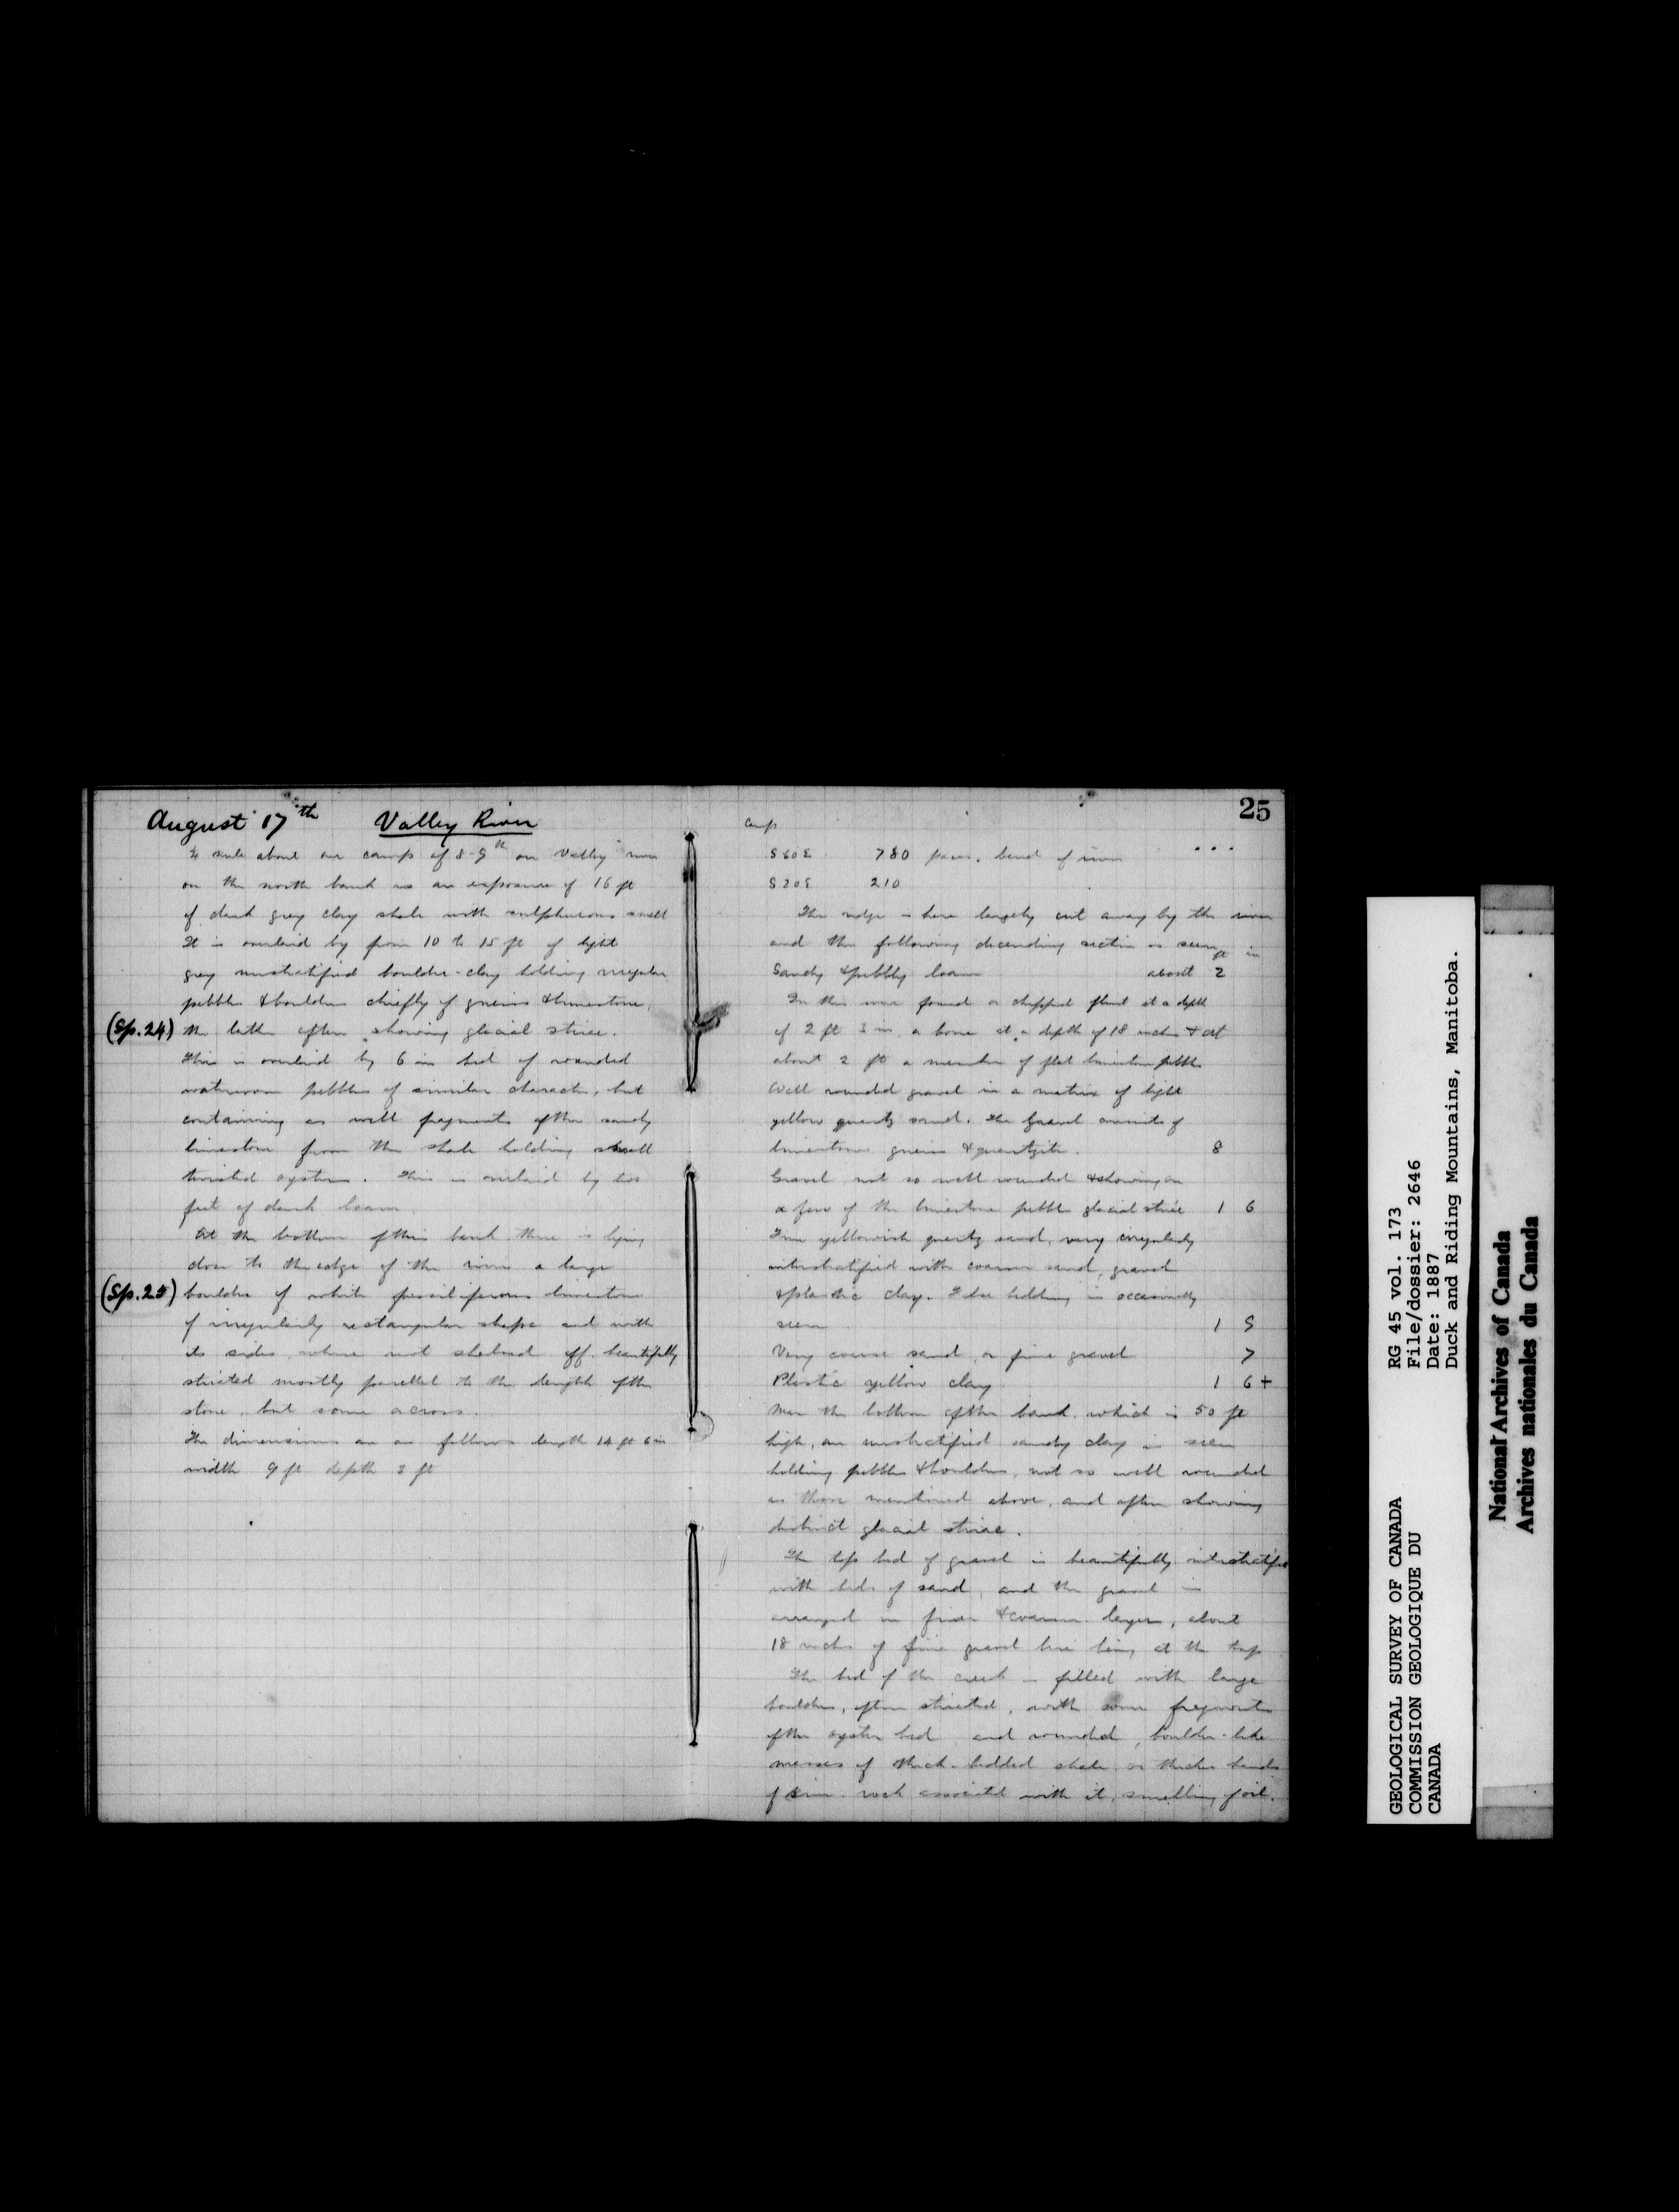 August 17th Valley River
¼ mile above our camp of 8-9th on Valley river
on the north bank is an exposure of 16 ft
of dark grey clay shale with sulphurous smell
It is overlaid by from 10 to 15 ft of light
grey unstratified boulder-clay holding irregular
pebbles & boulders chiefly of gneiss & limestone,
(Sp. 24) the latter often showing glacial striae.
This is overlaid by 6 in bed of rounded
waterworn pebbles of similar character, but
containing as well fragments of the sandy
limestone from the shale holding small
twisted oysters. This is overlaid by two
feet of dark loam.
At the bottom of this bank there is lying
close to the edge of the river a large
(Sp. 25) boulder of white fossiliferous limestone
of irregularly rectangular shape and with
its sides, where not shelved off, beautifully
striated mostly parallel to the length of the
stone, but some across.
The dimensions are as follows length 14 ft 6 in
width 9 ft depth 3 ft
25
Camp
S60E 780 paces, bend of river . . .
S20E 210
The ridge is here largely cut away by the river
and the following descending section is seen
ft in
Sandy & pebbly loam about 2
In this were found a chipped flint at a depth
of 2 ft 3 in, a bone at a depth of 18 inches & at
about 2 ft a number of flat limestone pebbles
Well rounded gravel in a matrix of light
yellow quartz sand. The gravel consists of
limestone gneiss & quartzite. 8
Gravel, not so well rounded & showing on
a few of the limestone pebbles glacial striae 1 6
Fine yellowish quartz sand, very irregularly
interstratified with coarse sand, gravel
& plastic clay. False bedding is occasionally
seen 1 5
Very coarse sand, or fine gravel 7
Plastic yellow clay 1 6+
Near the bottom of the bank, which is 50 ft
high, an unstratified sandy clay is seen
holding pebbles & boulders, not so well rounded
as those mentioned above, and often showing
distinct glacial striae.
The top bed of gravel is beautifully interstratified
with beds of sand, and the gravel is
arranged in finer & coarser layers, about
18 inches of fine gravel here being at the top
The bed of the creek is filled with large
boulders, often striated, with some fragments
of the oyster bed and rounded, boulder-like
masses of thick-bedded shale or thicker bands
of rock associated with it, smelling of oil.
GEOLOGICAL SURVEY OF CANADA
COMMISSION GEOLOGIQUE DU
CANADA
RG 45 vol. 173
File/dossier: 2646
Date: 1887
Duck and Ridding Mountains, Manitoba.
National Archives of Canada
Archives nationales du Canada